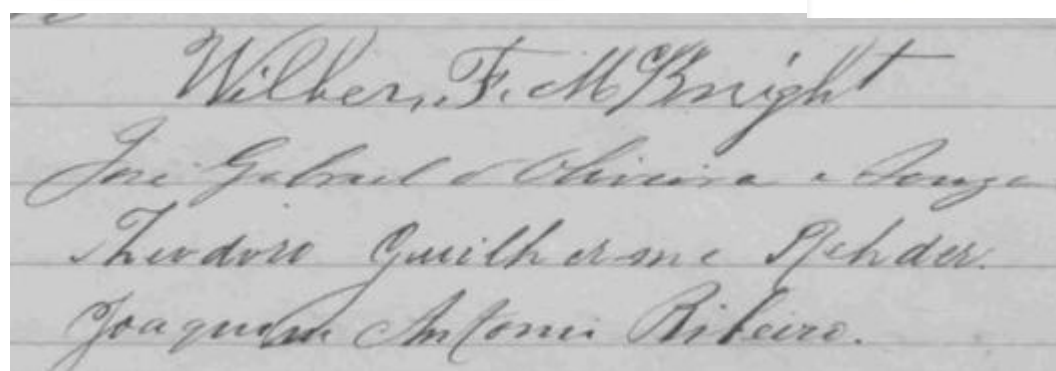 Wilber, F. McKnight
José Gabriel d'Oliveira e Souza
Theodoro Guilherme Rehder.
Joaquim Antonio Ribeiro.